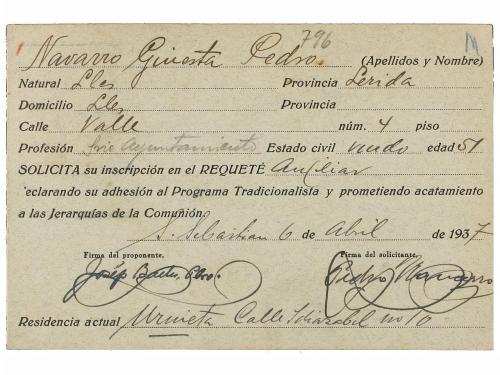 796
Navarro Ginesta Pedro. (Apellidos y Nombre)
Natural Lles Provincia Lerida
Domicilio Lles Provincia
Calle Valle núm. 4 piso
Profesión Ayuntamiento Estado civil viudo edad 51
SOLICITA su inscripción en el REQUETÉ Auxiliar
eclarando su adhesión al Programa Tradicionalista y prometiendo acatamiento
a las Jerarquías de la Comunión.
S. Sebastian 6 de Abril de 1937
Firma del proponente. Firma del solicitante.
Josép Pbro. Pedro Navarro
Residencia actual Urnieta Calle no 10